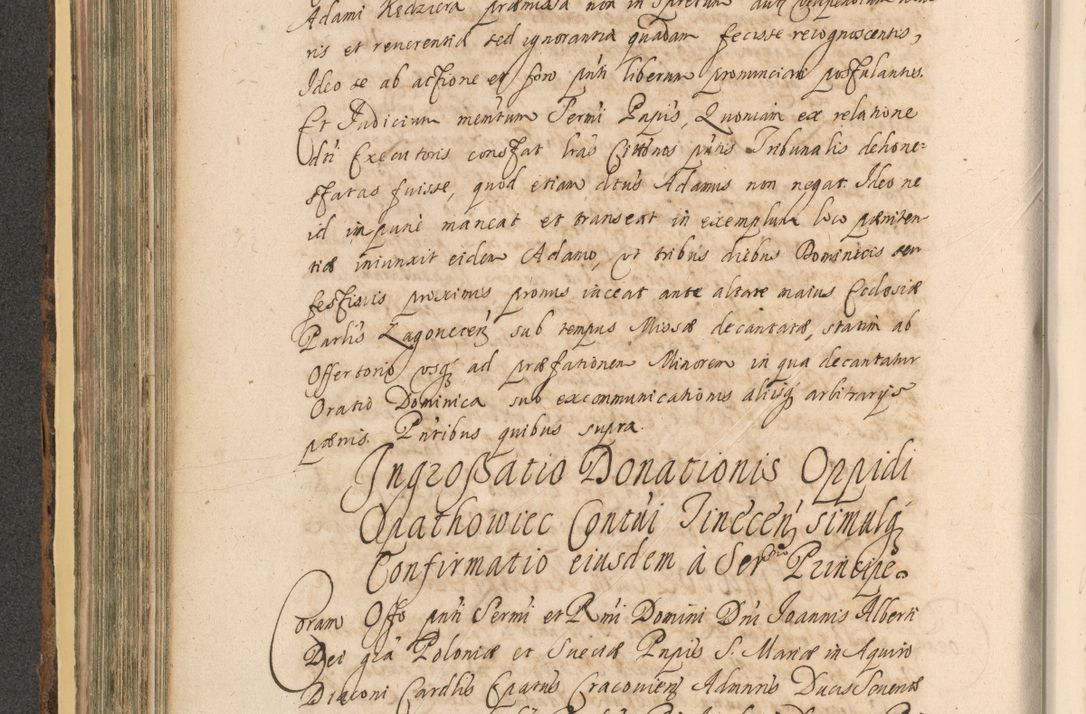 Adami Kędziera præmissa non in spretum aut
ris et reverentia sed ignorantia quadam fecisse recognoscentis,
Ideo se ab actione et foro pñti liberum pronunciari postulantis.
Et Judicium memtum Sermi Pnpis, Quoniam ex relatione
dti Executoris constat lras Cittônes pñtis Tribunalis dehone-
statas fuisse, quod etiam dtus Adamus non negat. Ideo ne
id impune maneat et transeat in exemplum loco pæniten-
tiæ iniunxit eidem Adamo, ut tribus diebus Dominicis seu
festivis proximis pronus iaceat ante altare maius Ecclesiæ
Parlis Zagonecen̄ sub tempus Missæ decantatæ, statim ab
Offertorio usq ad præfationem Minorem in qua decantatur
Oratio Dominica sub excommunicationis aliisq arbitrarys
pænis. Pñtibus quibus supra.
Ingrossatio Donationis Oppidi
Opathowiec Contui Tinecen̄ simulq
Confirmatio eiusdem à Sermo Principe.
Coram Offo pñti Sermi et Rmi Domini Dni Joannis Alberti
Dei gra Poloniæ et Sueciæ Pnpis S. Mariæ in Aquiro
Diaconi Cardlis Epatus Cracovien̄ Admnris Ducis Severiæ